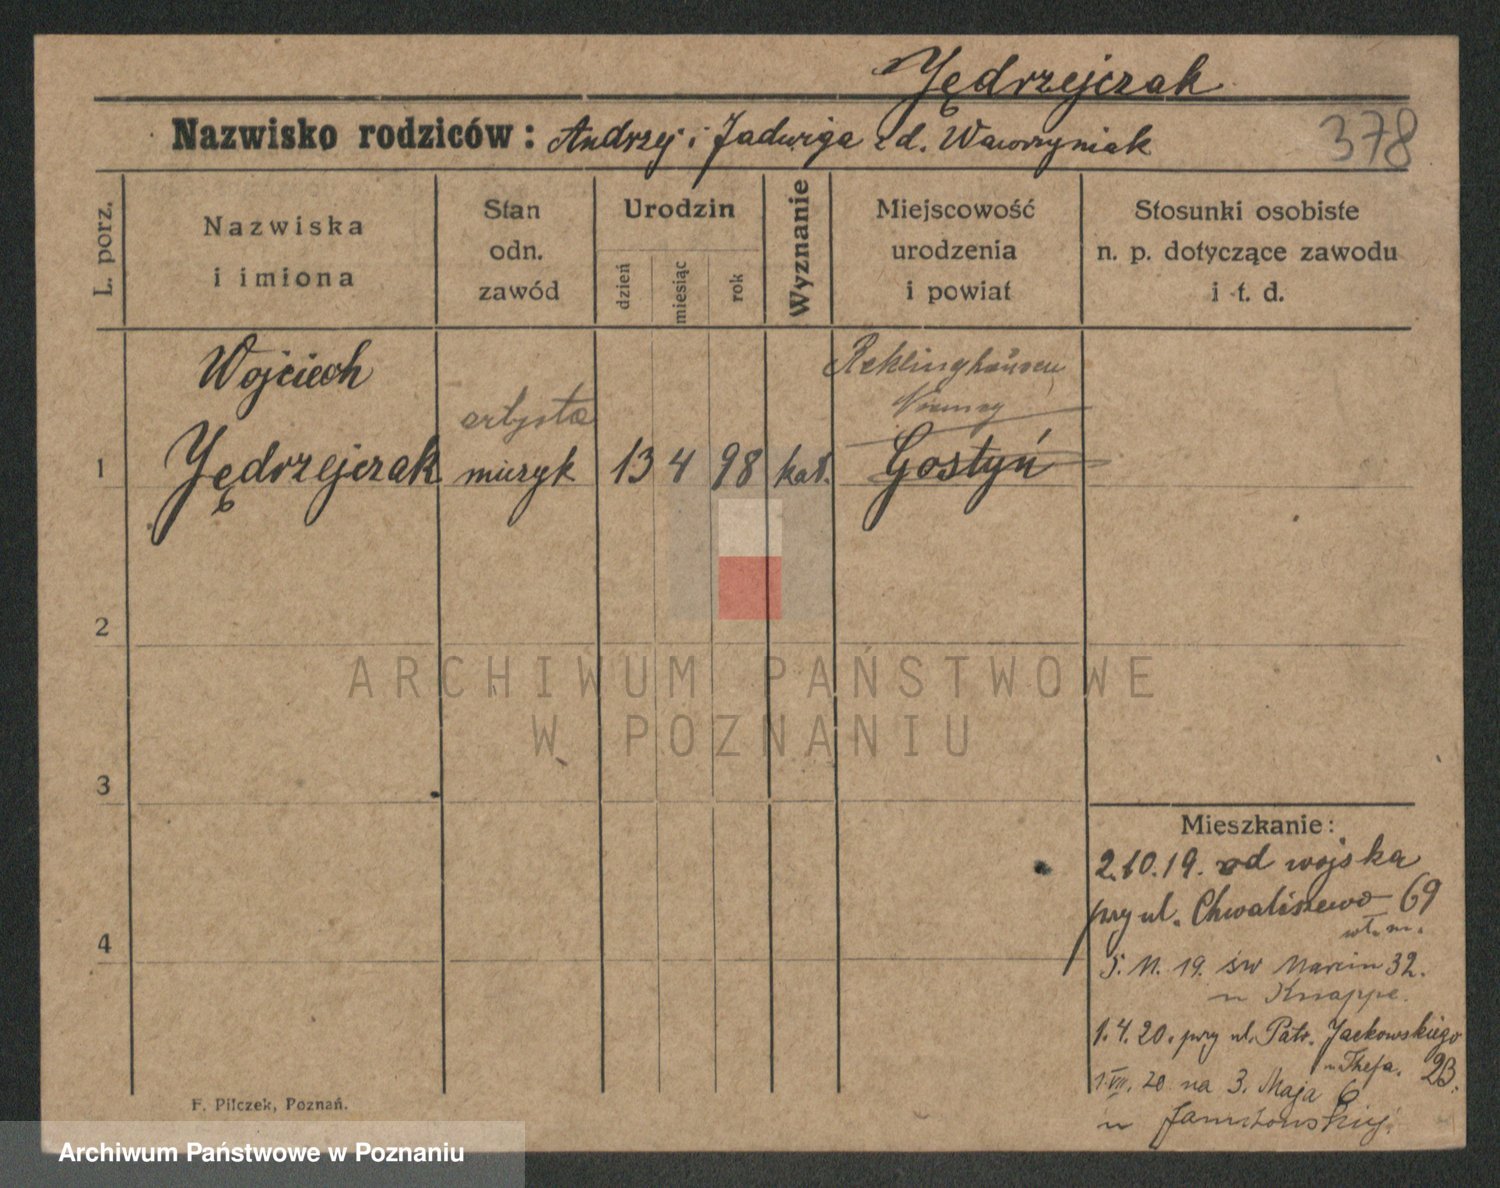 Jędrzejczak
Nazwisko rodziców: Andrzej i Jadwiga z d. Wawrzyniak
378
L. porz.
Nazwiska
i imiona
Stan
odn.
zawód
Urodzin
dzień
miesiąc
rok
Wyznanie
Miejscowość
urodzenia
i powiat
Stosunki osobiste
n. p. dotyczące zawodu
i t. d.
1
Wojciech
Jędrzejczak
artysta
muzyk
13
4
98
kat.
Reklinghausen
Niemcy
Gostyń
2
ARCHIWUM PAŃSTWOWE
W POZNANIU
3
4
Mieszkanie:
2.10.19. od wojska
przy ul. Chwaliszewo 69
wł. m.
5. 11. 19. św Marcin 32.
u Knappe.
1.4.20. przy ul. Patr. Jackowskiego
23.
1.VII. 20 na 3. Maja 6
u
F. Pilczek, Poznań.
Archiwum Państwowe w Poznaniu